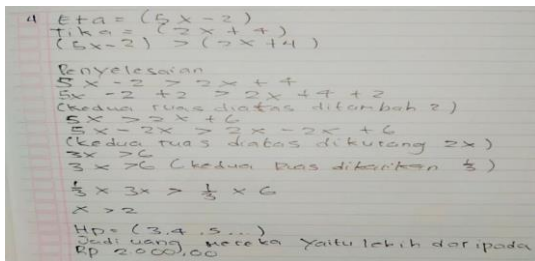 4 Eta = (5x-2)
Tika = (2x+4)
(5x-2) > (2x+4)
Penyelesaian
5x - 2 > 2x + 4
5x - 2 + 2 > 2x + 4 + 2
(kedua ruas diatas ditambah 2)
5x > 2x + 6
5x - 2x > 2x - 2x + 6
(kedua ruas diatas dikurang 2x)
3x > 6
3x > 6 (kedua ruas dikalikan 1/3)
1/3 x 3x > 1/3 x 6
x > 2
Hp = (3,4,5...)
Jadi uang mereka yaitu lebih daripada
Rp 2.000,00